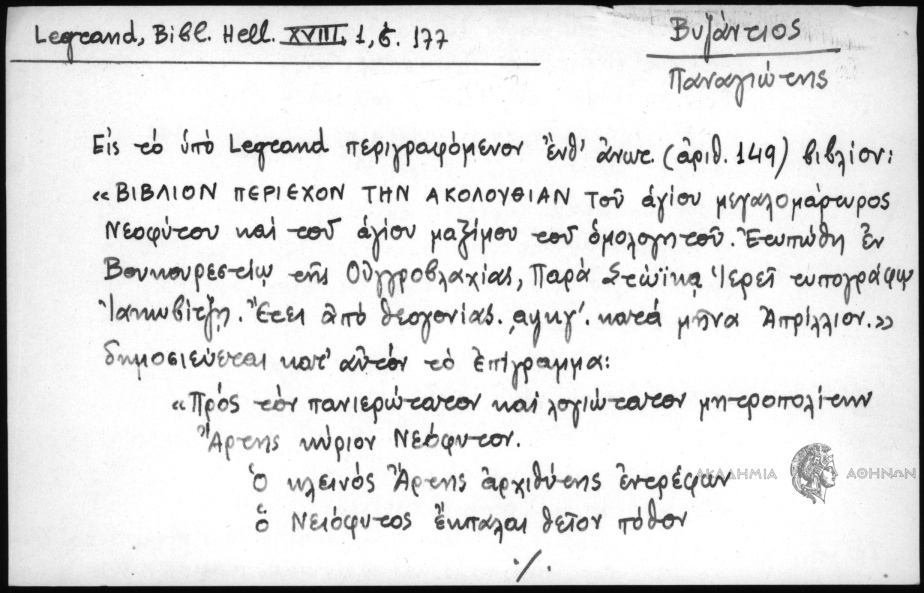 Legrand, Bibl. Hell. XVIII, 1, σ. 177
Βυζάντιος
Παναγιώτης
Εἰς τὸ ὑπὸ Legrand περιγραφόμενον ἔνθ' ἄνωτ. (ἀριθ. 149) βιβλίον:
«ΒΙΒΛΙΟΝ ΠΕΡΙΕΧΟΝ ΤΗΝ ΑΚΟΛΟΥΘΙΑΝ τοῦ ἁγίου μεγαλομάρτυρος
Νεοφύτου καὶ τοῦ ἁγίου μαξίμου τοῦ ὁμολογητοῦ. Ἐτυπώθη ἐν
Βουκουρεστίῳ τῆς Οὑγγροβλαχίας, Παρὰ Στωΐκᾳ Ἱερεῖ τυπογράφῳ
Ἰακωβίτζῃ. Ἔτει ἀπὸ θεογονίας. ͵αψκγ'. κατὰ μῆνα Ἀπρίλλιον.»
δημοσιεύεται κατ' αὐτὸν τὸ ἐπίγραμμα:
«Πρὸς τὸν πανιερώτατον καὶ λογιώτατον μητροπολίτην
Ἄρτης κύριον Νεόφυτον.
Ὁ κλεινὸς Ἄρτης ἀρχιθύτης ἐντρέφων
ὁ Νεόφυτος ἔκπαλαι θεῖον πόθον
./.
ΑΚΑΔΗΜΙΑ ΑΘΗΝΩΝ